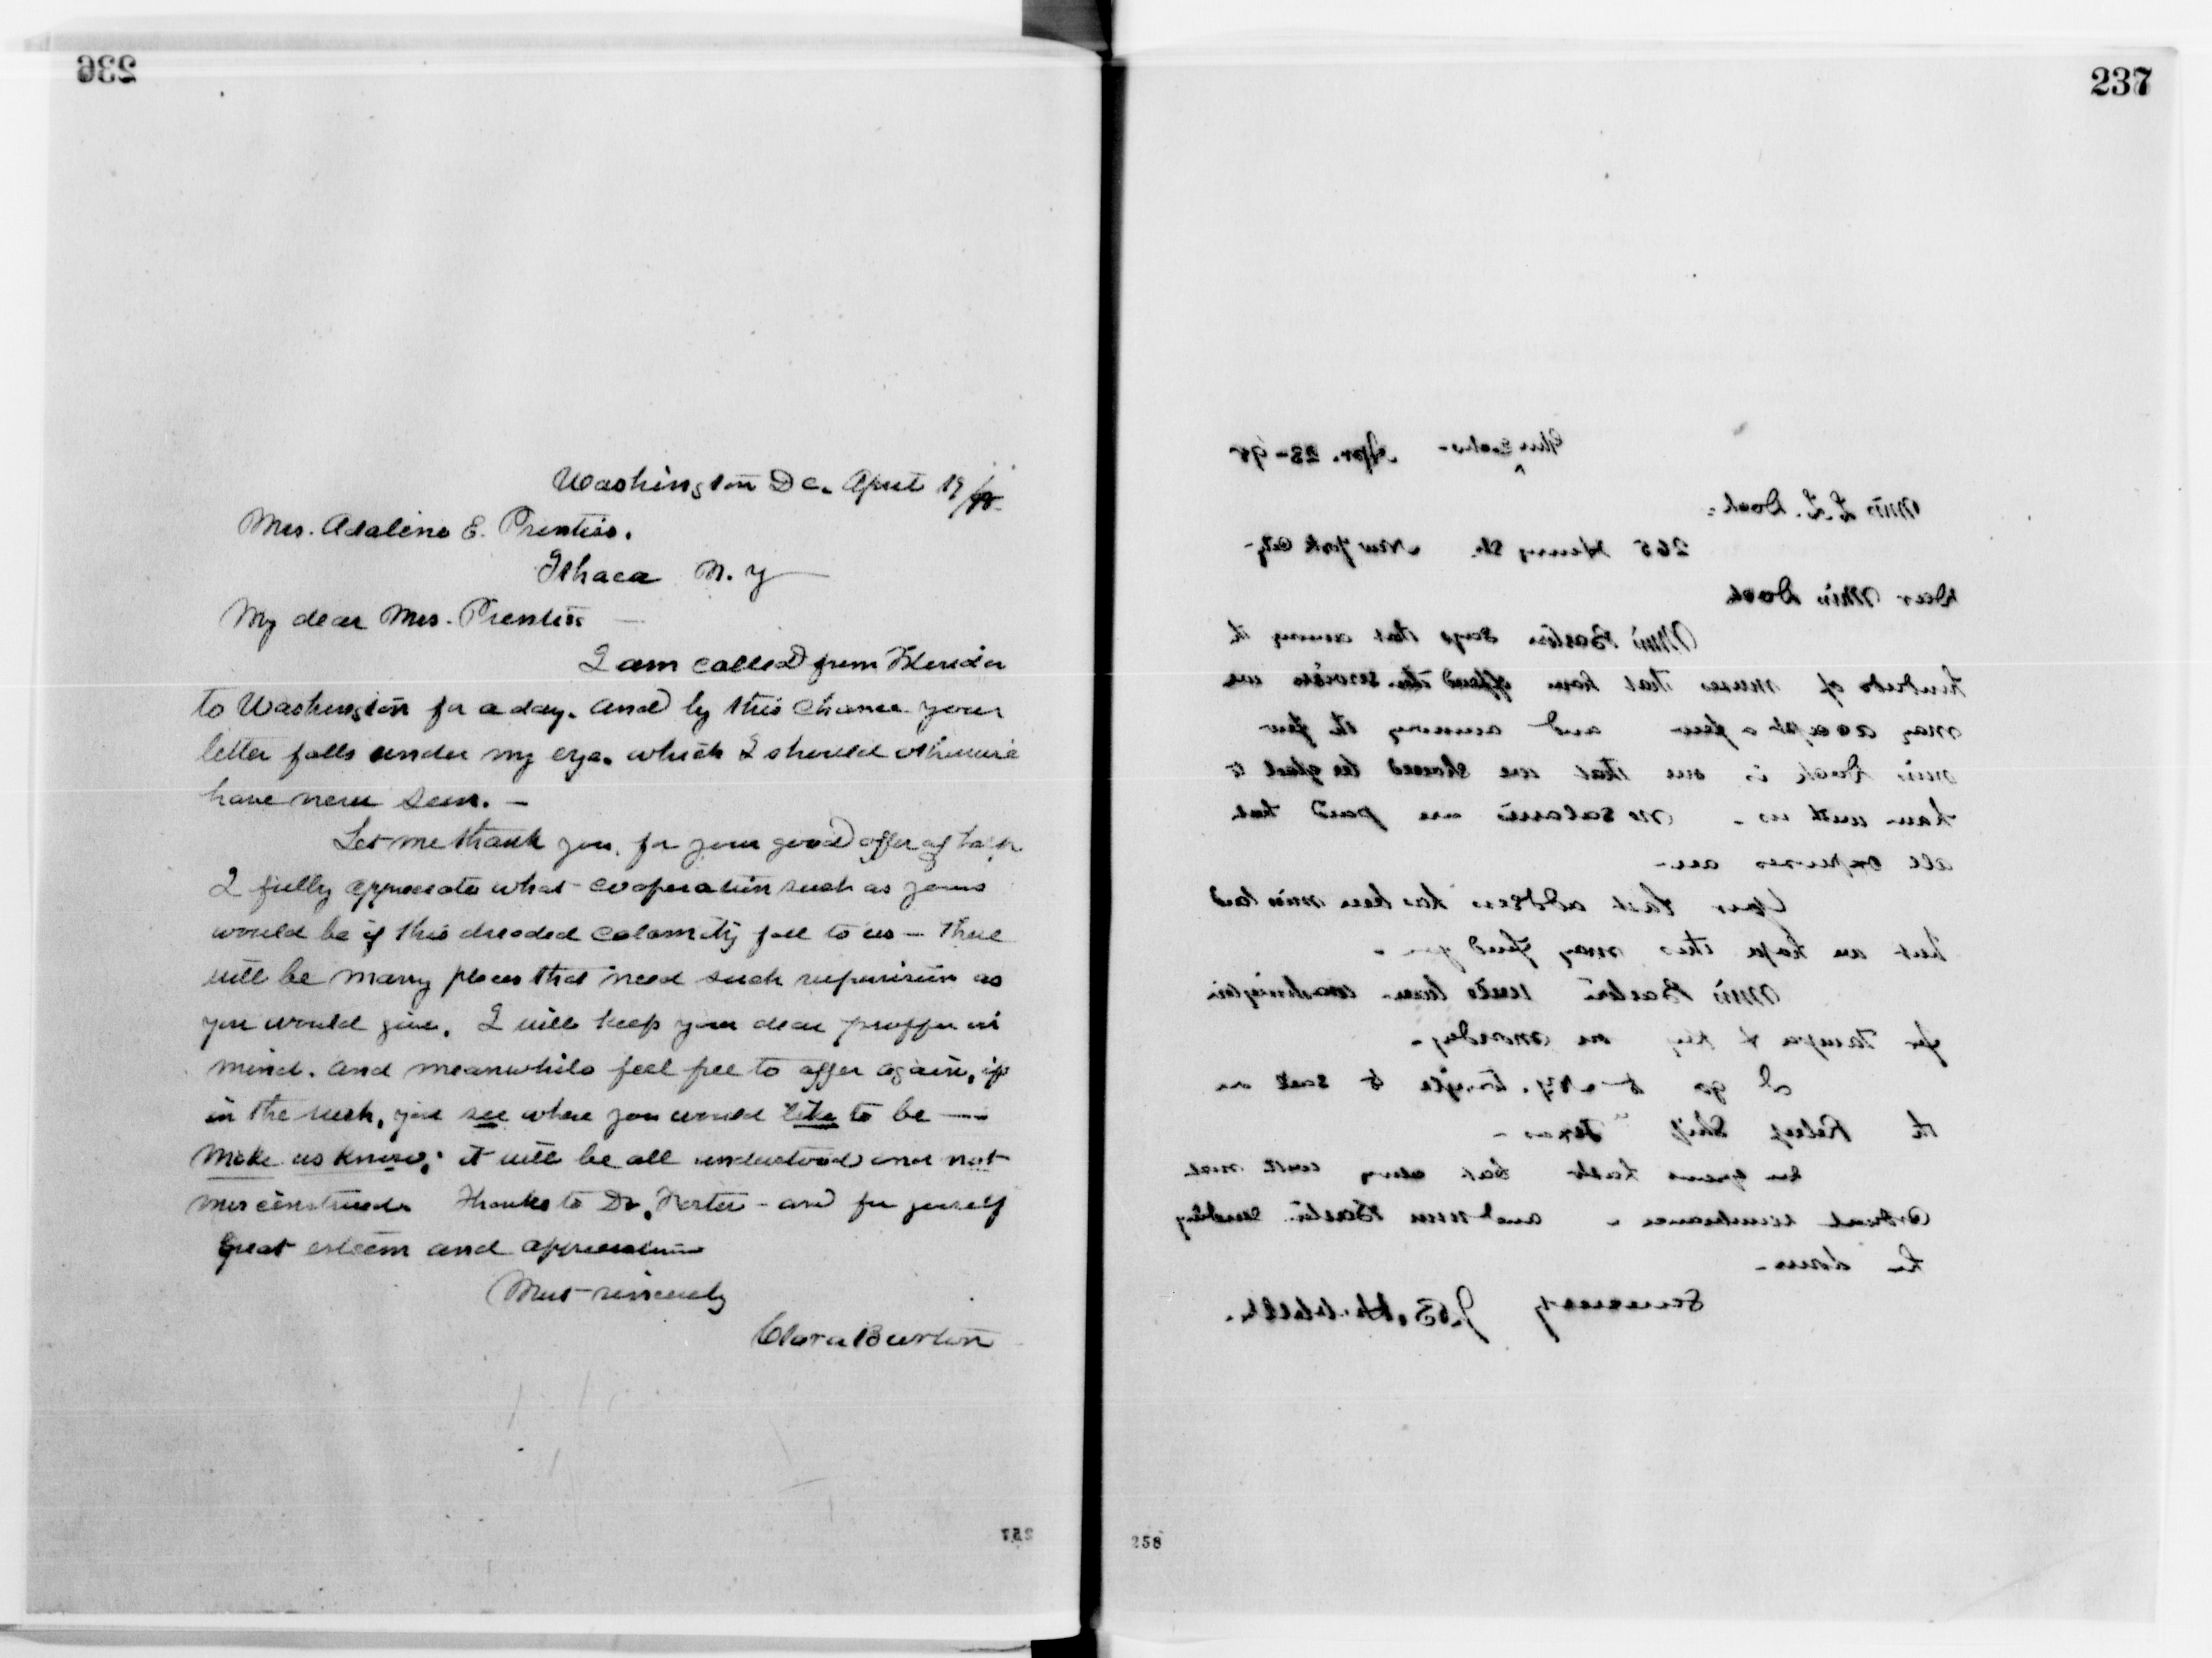 236
Washington D.C. April 19/98.
Mrs. Adaline E. Prentiss.
Ithaca N.Y
My dear Mrs. Prentiss
I am called from Florida
to Washington for a day. and by this chance your
letter falls under my eye. which I should otherwise
have never seen. —
Let me thank you, for your good offer of help
I fully appreciate what cooperation such as yours
would be if this dreaded calamity fall to us — There
will be many places that need such supervision as
you would give. I will keep your dear proffer in
mind. and meanwhile feel free to offer again, if
in the rush, you see where you would like to be —
make us know; it will be all understood and not
misconstrued. Thanks to Dr. — and for yourself
great esteem and appreciation
Most sincerely
Clara Barton
257
237
Apr. 23-98
Miss L. L. Dock-
265 Henry St. New York City-
Dear Miss Dock
Miss Barton says that among the
hundreds of nurses that have offered their services we
may accept a few and among the few
Miss Dock is one that we should be glad to
have with us - No salaries are paid but
all expenses are-
Your last address has been mislaid
but we hope this may find you -
Miss Barton will leave Washington
for Tampa & Key on Monday-
I go to N.Y. to sail on
the Relief Ship "Texas" -
in great haste but many
and Miss Barton sending
Sincerely
258